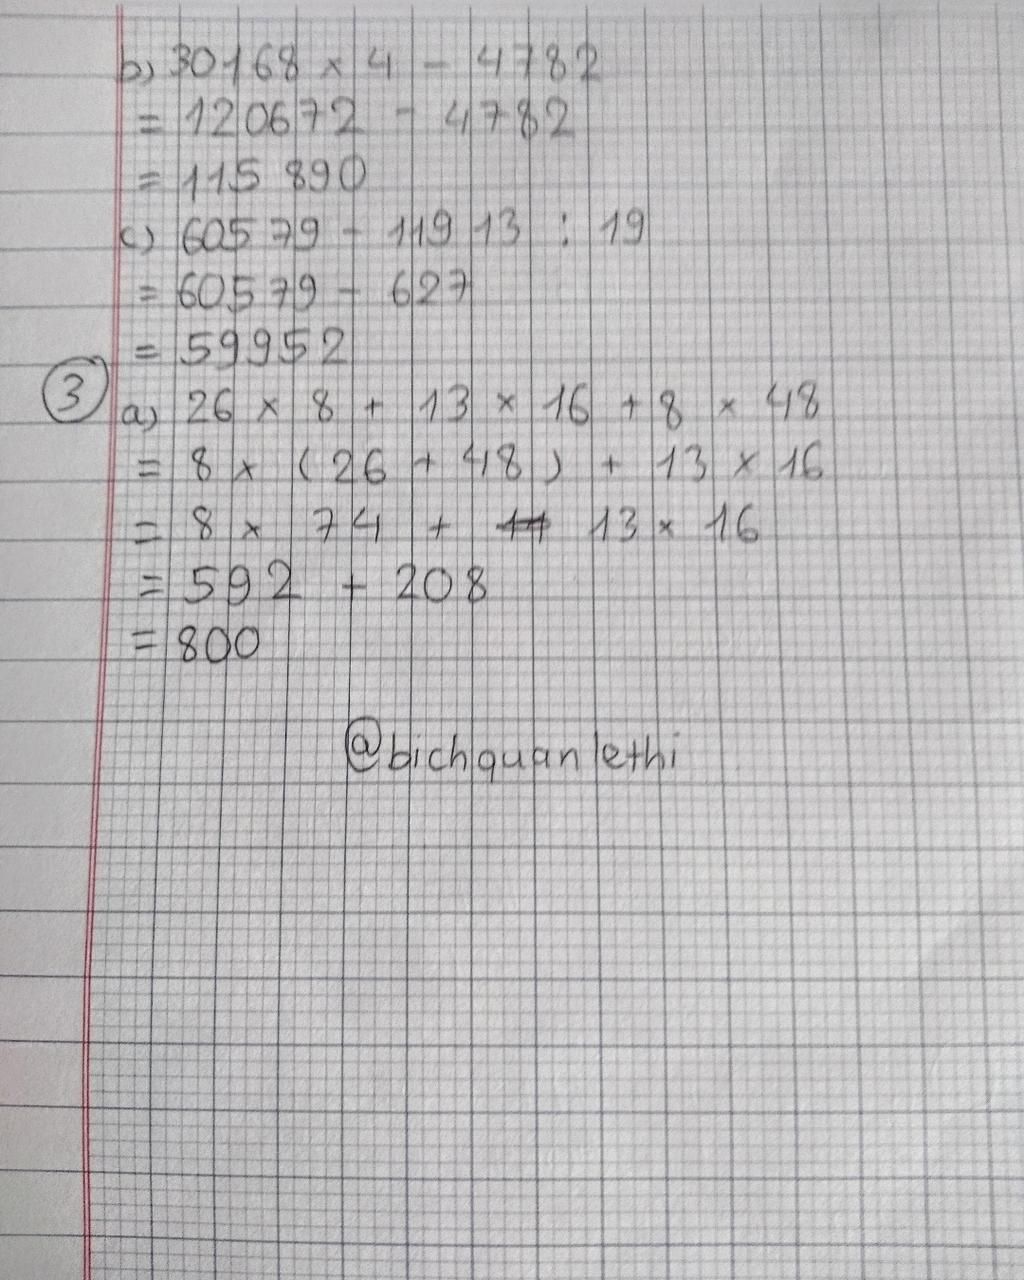 b) 30168 × 4 - 4782
= 120672 - 4782
= 115 890
c) 60579 - 11913 : 19
= 60579 - 627
= 59952
③ a) 26 × 8 + 13 × 16 + 8 × 48
= 8 × (26 + 48) + 13 × 16
= 8 × 74 + 13 × 16
= 592 + 208
= 800
@bichquanlethi